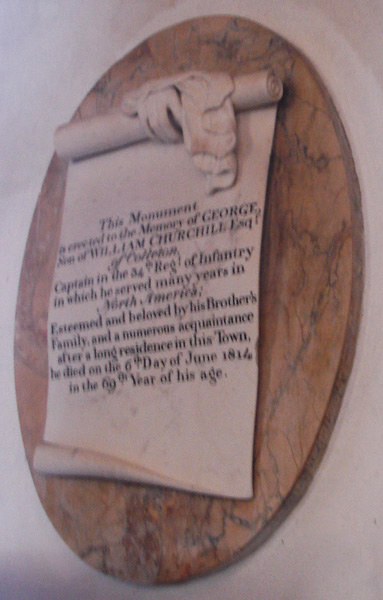 This Monument
is erected to the Memory of GEORGE,
Son of WILLIAM CHURCHILL Esqr.
of Colleton,
Captain in the 34th Regt. of Infantry
in which he served many years in
North America;
Esteemed and beloved by his Brother's
Family, and a numerous acquaintance
after a long residence in this Town,
he died on the 6th Day of June 1814
in the 69th Year of his age.